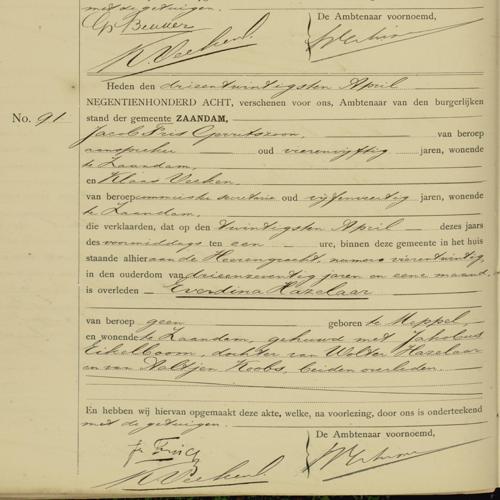 met de getuigen.
De Ambtenaar voornoemd,
G. Beuver
K. Veeken
Heden den drieentwintigsten April
NEGENTIENHONDERD ACHT, verschenen voor ons, Ambtenaar van den burgerlijken
No. 91 stand der gemeente ZAANDAM,
Jacob Fris Gerritszoon, van beroep
aanspreker oud vierenvijftig jaren, wonende
te Zaandam,
en Klaas Veeken,
van beroep commies ter secretarie oud vijfenveertig jaren, wonende
te Zaandam,
die verklaarden, dat op den twintigsten April dezes jaars
des voormiddags ten een ure, binnen deze gemeente in het huis
staande alhier aan de Heerengracht, numero vierentwintig
in den ouderdom van drieenzeventig jaren en eene maand,
is overleden Everdina Hazelaar
van beroep geen geboren te Meppel,
en wonende te Zaandam, gehuwd met Jakobus
Eikelboom, dochter van Wolter Hazelaar
en van Aaltjen Koobs, beiden overleden.
En hebben wij hiervan opgemaakt deze akte, welke, na voorlezing, door ons is onderteekend
met de getuigen.
De Ambtenaar voornoemd,
Jb Fris Gz
K. Veeken